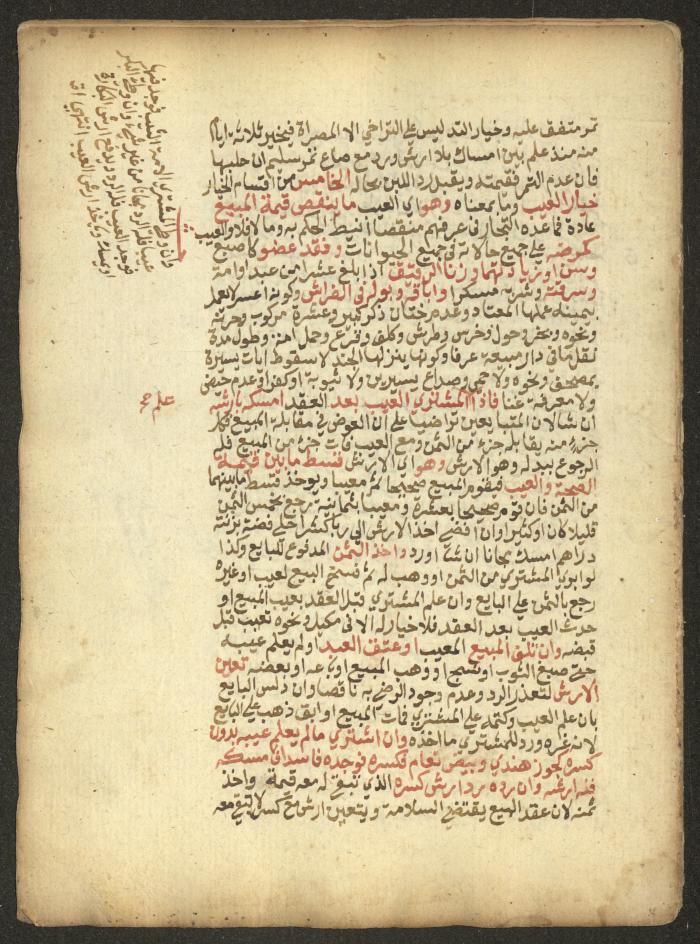 تمر متفق عليه وخيار التد ليس على التراخي الا المصراة فيخير ثلاثة ايام
منه منذ علم بين امساك بلا ارش ورد مع صاع تمر سليم ان حلبها
فان عدم التمر فقيمته ويقبل رد اللبن بحاله الخامس من اقسام الخيار
خيار العيب وما بمعناه وهو اي العيب ما ينقص قيمة المبيع
عادة فما عده التجار في عرفهم منقصا انيط الحكم به وما لا فلا والعيب
كمرضه على جميع حالاته في جميع الحيوانات وفقد عضو كاصبع
وسن او زيادتهما وزنا الرقيق اذا بلغ عشرا من عبد او امة
وسرقته وشربه مسكرا واباقه وبوله في الفراش وكونه اعسر لا يعمل
بيمينه عملها المعتاد وعدم ختان ذكر كبير وعثرة مركوب وحرنه
ونحوه وبخر وحول وخرس وطرش وكلف وقرع وحمل امة وطول مدة
نقل ما في دار مبيعة عرفا وكونها ينزلها الجند لا سقوط ايات يسيرة
بمصحف ونحوه ولا حمى وصداع يسيرين ولا ثيوبة او كفر او عدم حيض
ولا معرفة غنا فاذا علم المشتري العيب بعد العقد امسكه بارشه
ان شا لان المتبايعين تراضيا على ان العوض في مقابلة المبيع فكل
جزء منه يقابله جزء من الثمن ومع العيب فات جزء من المبيع فله
الرجوع ببدله وهو الارش وهو اي الارش قسط ما بين قيمة
الصحة والعيب فيقوم المبيع صحيحا ثم معيبا ويوخذ قسط ما بينهما
من الثمن فان قوم صحيحا بعشرة ومعيبا بثمانية رجع بخمس الثمن
قليلا كان او كثيرا وان افضى اخذ الارش الى ربا كشرا حلي فضة بزنته
دراهم امسك مجانا ان شا او رده واخذ الثمن المدفوع للبايع وكذا
لو ابري المشتري من الثمن او وهب له ثم فسخ البيع لعيب او غيره
رجع بالثمن على البايع وان علم المشتري قبل العقد بعيب المبيع او
حدث العيب بعد العقد فلا خيار له الا في مكيل ونحوه تعيب قبل
قبضه وان تلف المبيع المعيب او عتق العبد او لم يعلم عيبه
حتى صبغ الثوب او نسج او وهب المبيع او باعه او بعضه تعين
الارش لتعذر الرد وعدم وجود الرضى به ناقصا وان دلس البايع
بان علم العيب وكتمه على المشتري فات المبيع او ابق ذهب على البايع
لانه غره ورد للمشتري ما اخذه وان اشترى ما لم يعلم عيبه بدون
كسره كجوز هندي وبيض نعام فكسره فوجده فاسدا فامسكه
فله ارشه وان رده رد ارش كسره الذي تبقى له معه قيمة واخذ
ثمنه لان عقد البيع يقتضي السلامة ويتعين ارش مع كسر لا تبقى معه
وان وطئ المشتري الامة الثيب فوجد فيها
عيبا فله الرد مجانا من غير شي وان وطئ البكر
فوجد العيب فله الرد ويدفع ارش البكارة
او يمسك وياخذ ارش العيب انتهى
علم صح